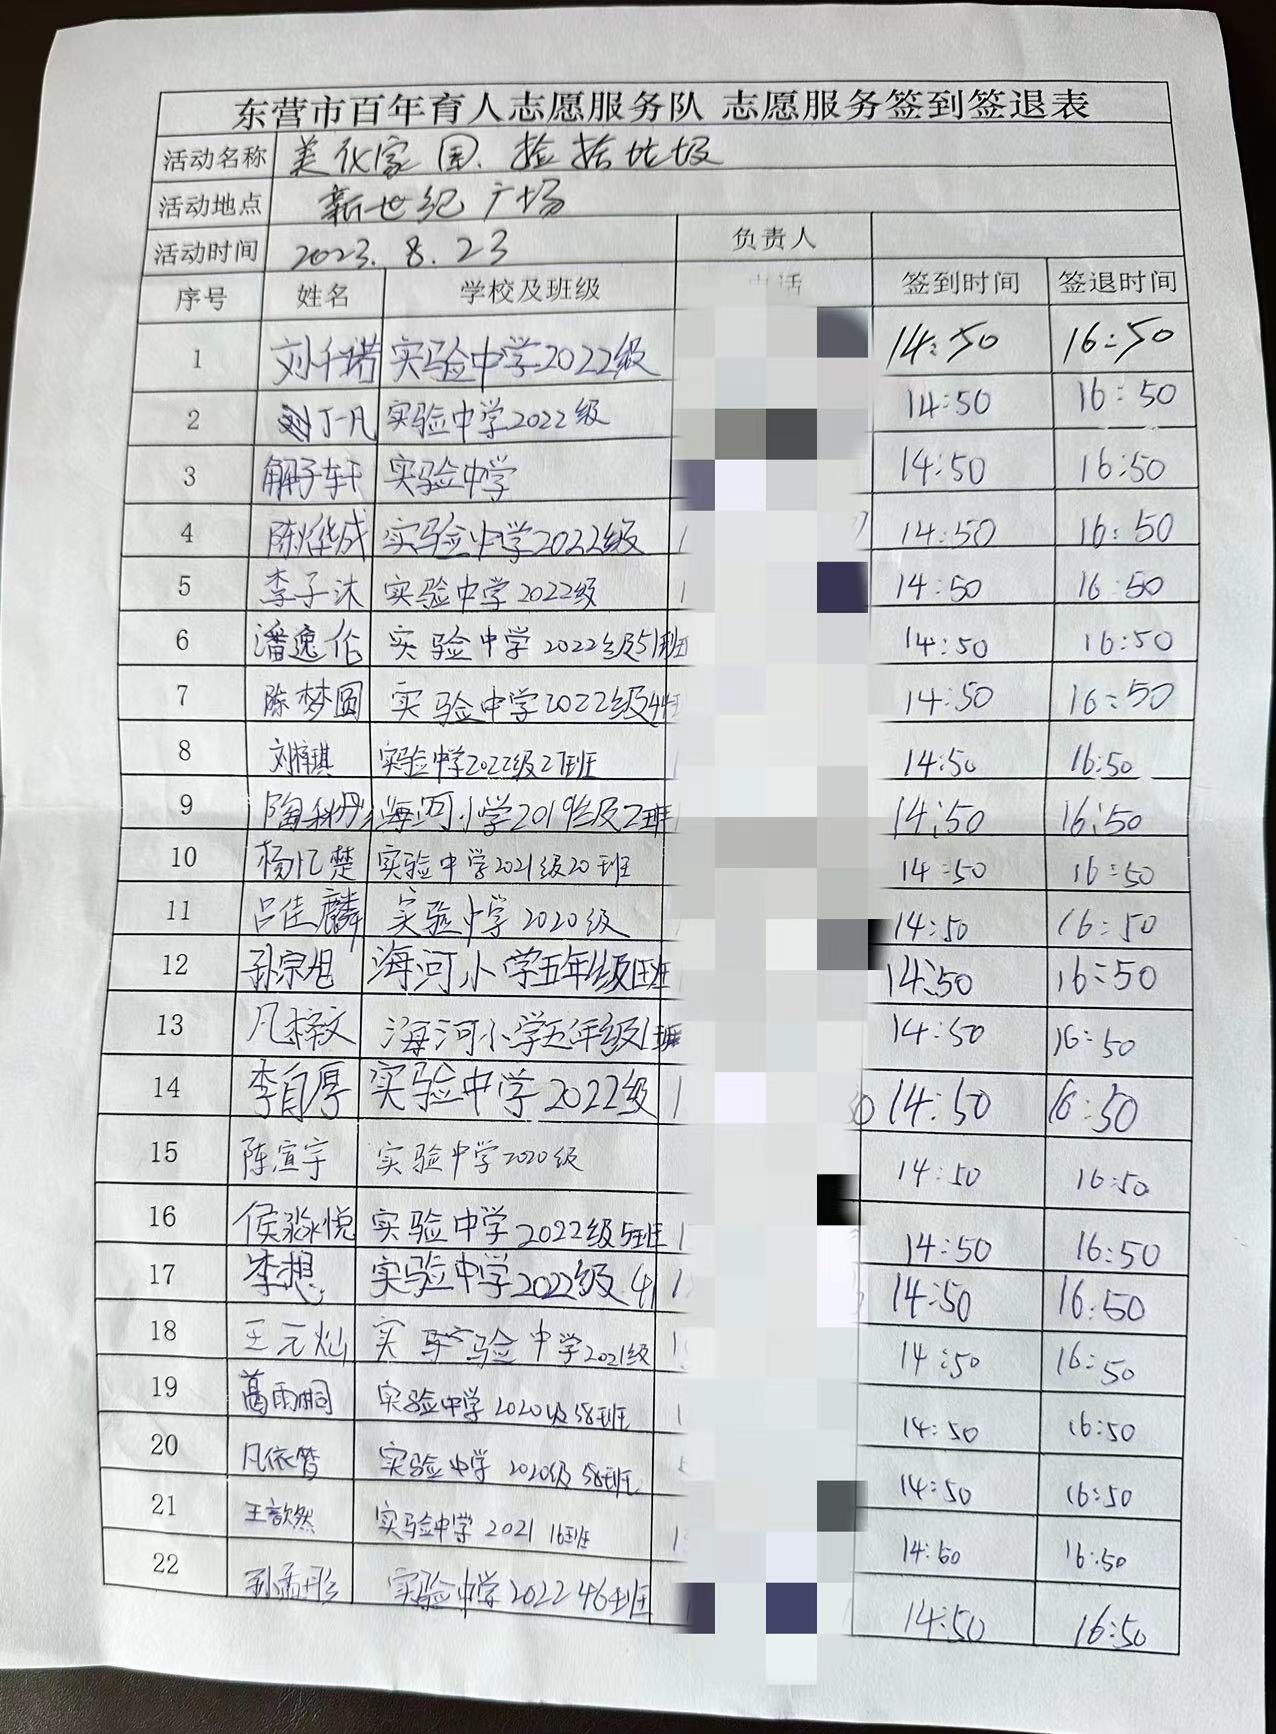 东营市百年育人志愿服务队 志愿服务签到签退表
活动名称 美化家园、捡拾垃圾
活动地点 新世纪广场
活动时间 2023.8.23 负责人
序号 姓名 学校及班级 电话 签到时间 签退时间
1 刘千诺 实验中学2022级 14:50 16:50
2 刘丁凡 实验中学2022级 14:50 16:50
3 解子轩 实验中学 14:50 16:50
4 陈烨成 实验中学2022级 14:50 16:50
5 李子沐 实验中学2022级 14:50 16:50
6 潘逸伦 实验中学2022级51班 14:50 16:50
7 陈梦圆 实验中学2022级44班 14:50 16:50
8 刘梓琪 实验中学2022级27班 14:50 16:50
9 陶 海河小学2019级2班 14:50 16:50
10 杨忆楚 实验中学2021级20班 14:50 16:50
11 吕佳麟 实验中学2020级 14:50 16:50
12 孙宗旭 海河小学五年级1班 14:50 16:50
13 凡梓文 海河小学五年级1班 14:50 16:50
14 李自厚 实验中学2022级 14:50 16:50
15 陈宣宇 实验中学2020级 14:50 16:50
16 侯淼悦 实验中学2022级5班 14:50 16:50
17 李想 实验中学2022级.41 14:50 16:50
18 王元灿 实验中学2021级 14:50 16:50
19 葛雨桐 实验中学2020级58班 14:50 16:50
20 凡依 实验中学2020级58班 14:50 16:50
21 王歆然 实验中学2021 16班 14:50 16:50
22 孟彤 实验中学2022 46班 14:50 16:50